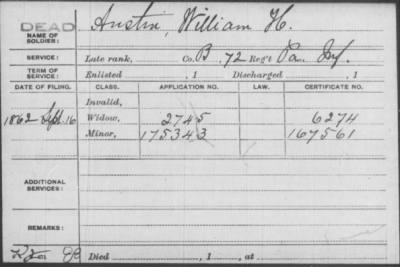 DEAD Austin, William H.
NAME OF SOLDIER:
SERVICE: Late rank, Co. B, 72 Reg't Pa. Inf.
TERM OF SERVICE: Enlisted , 1 Discharged , 1
DATE OF FILING. CLASS. APPLICATION NO. LAW. CERTIFICATE NO.
Invalid,
1862 Sept. 16 Widow, 2745 6274
Minor, 175343 167561
ADDITIONAL SERVICES:
REMARKS:
Died , 1 , at